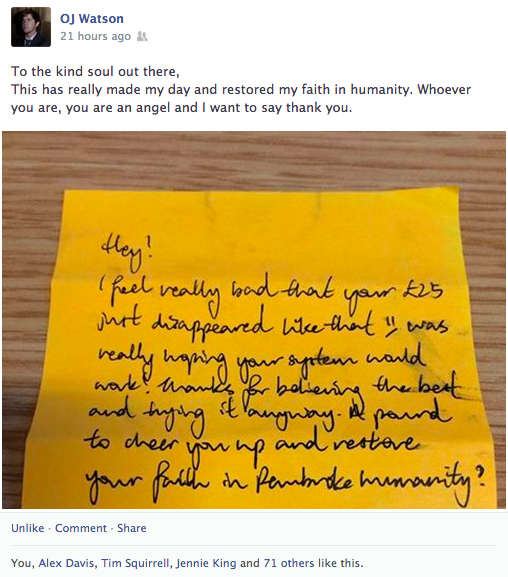 OJ Watson
21 hours ago
To the kind soul out there,
This has really made my day and restored my faith in humanity. Whoever
you are, you are an angel and I want to say thank you.
Hey!
I feel really bad that your £25
just disappeared like that !! was
really hoping your system would
work! Thanks for believing the best
and trying it anyway. A pound
to cheer you up and restore
your faith in Pembroke humanity?
Unlike · Comment · Share
You, Alex Davis, Tim Squirrell, Jennie King and 71 others like this.